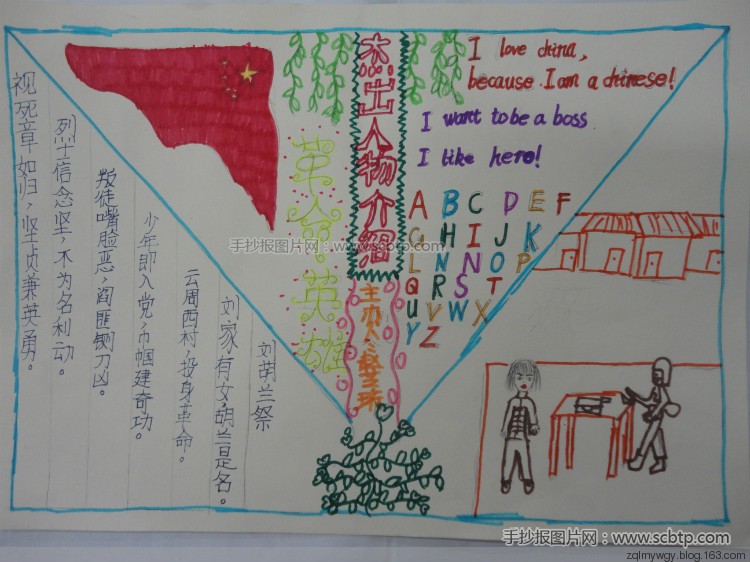 杰出人物介绍
革命英雄
主办人:
I love china,
because I am a chinese!
I want to be a boss
I like hero!
A B C D E F
G H I J K
L N N O P
Q R S T
U V W X
Y Z
刘胡兰祭
刘家有女,胡兰是名。
云周西村,投身革命。
少年即入党,巾帼建奇功。
叛徒嘴脸恶,阎匪铡刀凶。
烈士信念坚,不为名利动。
视死章如归,坚贞兼英勇。
手抄报图片网:www.scbtp.com
手抄报图片网:www.scbtp.com
zqlmywgy.blog.163.com